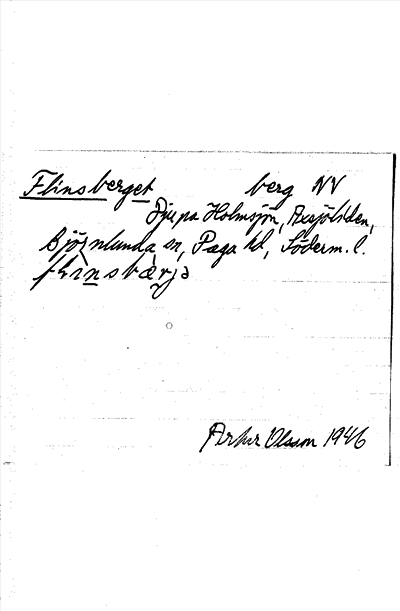 Flinsberget berg NV
Djupa Holmsjön, Axsjöliden,
Björnlunda sn, Daga hd, Söderm. l.
flinsbærjə
Artur Olsson 1946